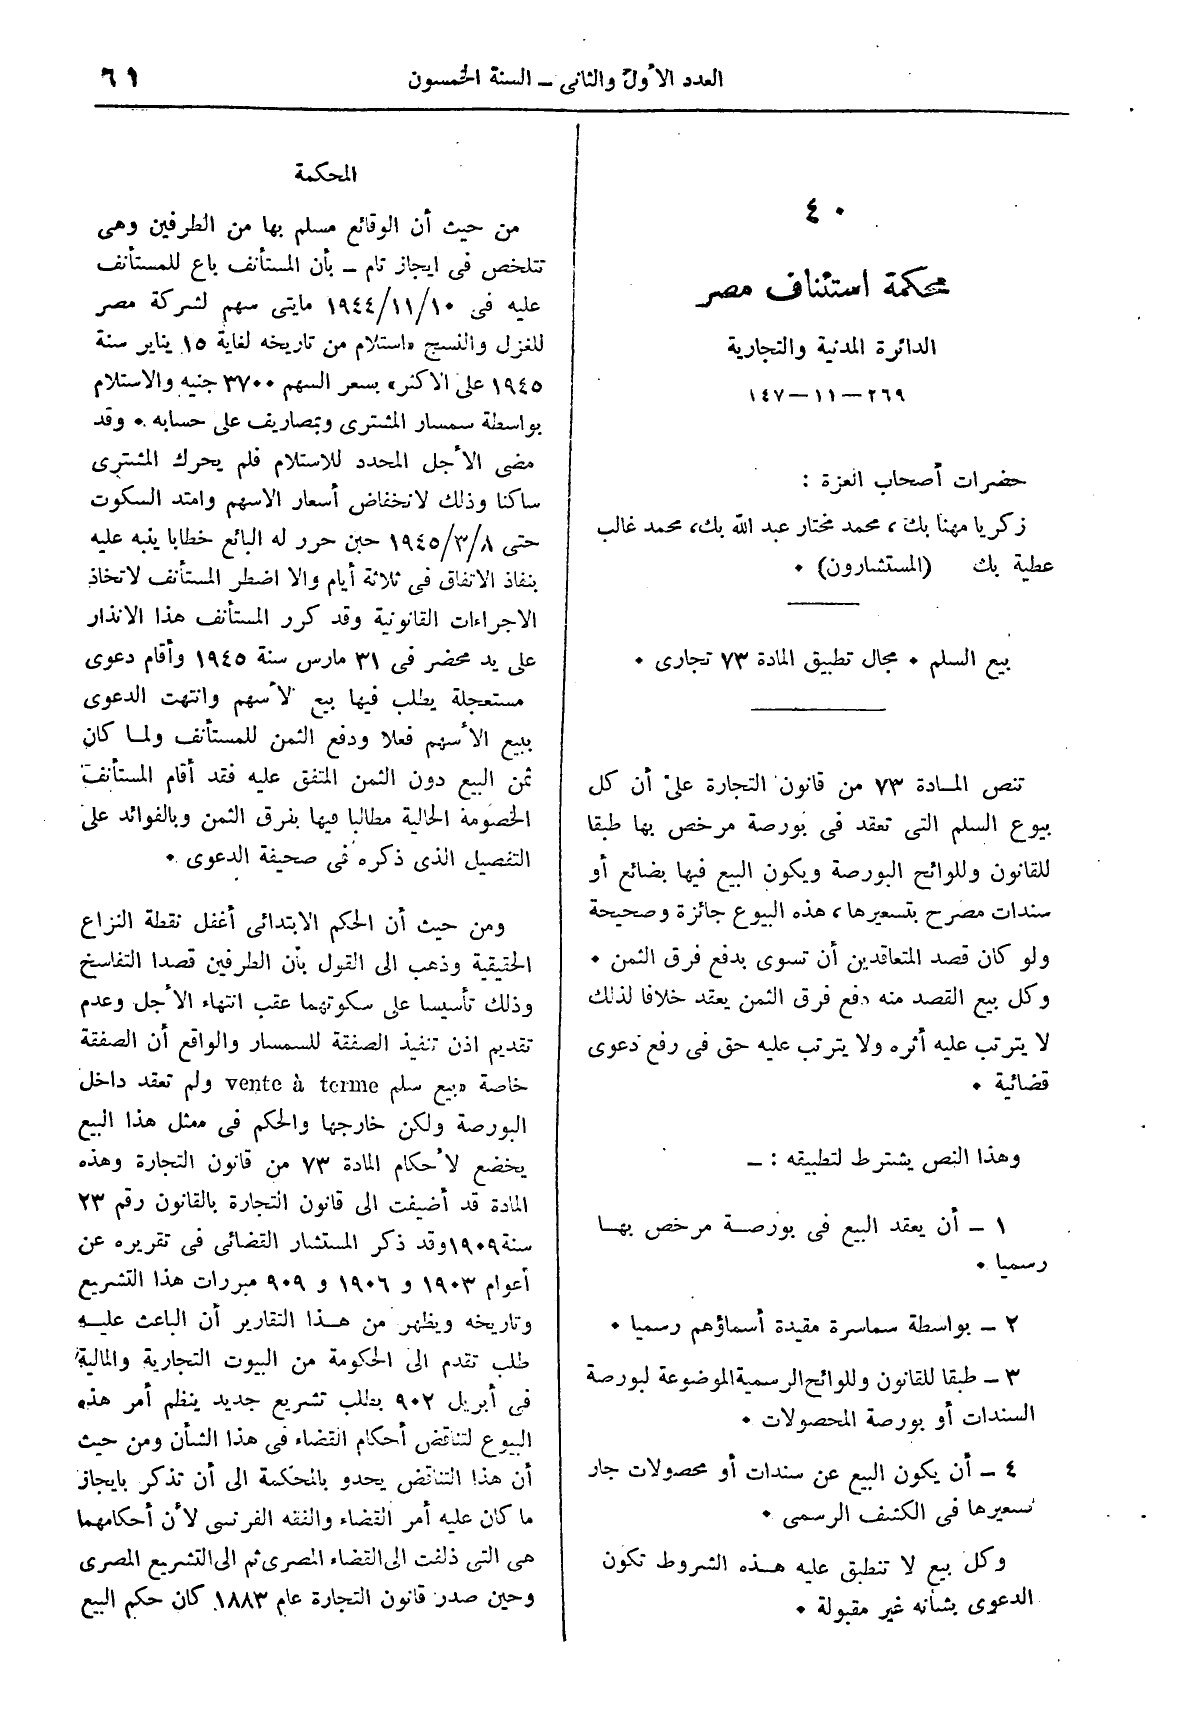 العدد الأول والثانى — السنة الخمسون
٦١
٤٠
محكمة استئناف مصر
الدائرة المدنية والتجارية
٢٦٩ — ١١ — ١٤٧
حضرات أصحاب العزة :
زكريا مهنا بك ، محمد مختار عبد الله بك ، محمد غالب
عطية بك (المستشارون) •
بيع السلم • مجال تطبيق المادة ٧٣ تجارى •
تنص المادة ٧٣ من قانون التجارة على أن كل
بيوع السلم التى تعقد فى بورصة مرخص بها طبقا
للقانون وللوائح البورصة ويكون البيع فيها بضائع أو
سندات مصرح بتسعيرها ، هذه البيوع جائزة وصحيحة
ولو كان قصد المتعاقدين أن تسوى بدفع فرق الثمن •
وكل بيع القصد منه دفع فرق الثمن يعقد خلافا لذلك
لا يترتب عليه أثره ولا يترتب عليه حق فى رفع دعوى
قضائية •
وهذا النص يشترط لتطبيقه : —
١ — أن يعقد البيع فى بورصة مرخص بها
رسميا •
٢ — بواسطة سماسرة مقيدة أسماؤهم رسميا •
٣ — طبقا للقانون وللوائح الرسمية الموضوعة لبورصة
السندات أو بورصة المحصولات •
٤ — أن يكون البيع عن سندات أو محصولات جار
تسعيرها فى الكشف الرسمى •
وكل بيع لا تنطبق عليه هذه الشروط تكون
الدعوى بشأنه غير مقبولة •
المحكمة
من حيث أن الوقائع مسلم بها من الطرفين وهى
تتلخص فى ايجاز تام — بأن المستأنف باع للمستأنف
عليه فى ١٩٤٤/١١/١٠ مايتى سهم لشركة مصر
للغزل والنسج «استلام من تاريخه لغاية ١٥ يناير سنة
١٩٤٥ على الاكثر» بسعر السهم ٣٧٠٠ جنيه والاستلام
بواسطة سمسار المشترى وبمصاريف على حسابه • وقد
مضى الأجل المحدد للاستلام فلم يحرك المشترى
ساكنا وذلك لانخفاض أسعار الاسهم وامتد السكوت
حتى ١٩٤٥/٣/٨ حين حرر له البائع خطابا ينبه عليه
بنفاذ الاتفاق فى ثلاثة أيام والا اضطر المستأنف لاتخاذ
الاجراءات القانونية وقد كرر المستأنف هذا الانذار
على يد محضر فى ٣١ مارس سنة ١٩٤٥ وأقام دعوى
مستعجلة يطلب فيها بيع الأسهم وانتهت الدعوى
ببيع الأسهم فعلا ودفع الثمن للمستأنف ولما كان
ثمن البيع دون الثمن المتفق عليه فقد أقام المستأنف
الخصومة الحالية مطالبا فيها بفرق الثمن وبالفوائد على
التفصيل الذى ذكره فى صحيفة الدعوى •
ومن حيث أن الحكم الابتدائى أغفل نقطة النزاع
الحقيقية وذهب الى القول بأن الطرفين قصدا التفاسخ
وذلك تأسيسا على سكوتهما عقب انتهاء الأجل وعدم
تقديم اذن تنفيذ الصفقة للسمسار والواقع أن الصفقة
خاصة «بيع سلم vente à terme ولم تعقد داخل
البورصة ولكن خارجها والحكم فى ممثل هذا البيع
يخضع لأحكام المادة ٧٣ من قانون التجارة وهذه
المادة قد أضيفت الى قانون التجارة بالقانون رقم ٢٣
سنة ١٩٠٩ وقد ذكر المستشار القضائى فى تقريره عن
أعوام ١٩٠٣ و ١٩٠٦ و ٩٠٩ مبررات هذا التشريع
وتاريخه ويظهر من هذا التقارير أن الباعث عليه
طلب تقدم الى الحكومة من البيوت التجارية والمالية
فى أبريل ٩٠٢ بطلب تشريع جديد ينظم أمر هذه
البيوع لتناقض أحكام القضاء فى هذا الشأن ومن حيث
أن هذا التناقض يحدو بالمحكمة الى أن تذكر بايجاز
ما كان عليه أمر القضاء والفقه الفرنسى لأن أحكامهما
هى التى ذلفت الى القضاء المصرى ثم الى التشريع المصرى
وحين صدر قانون التجارة عام ١٨٨٣ كان حكم البيع